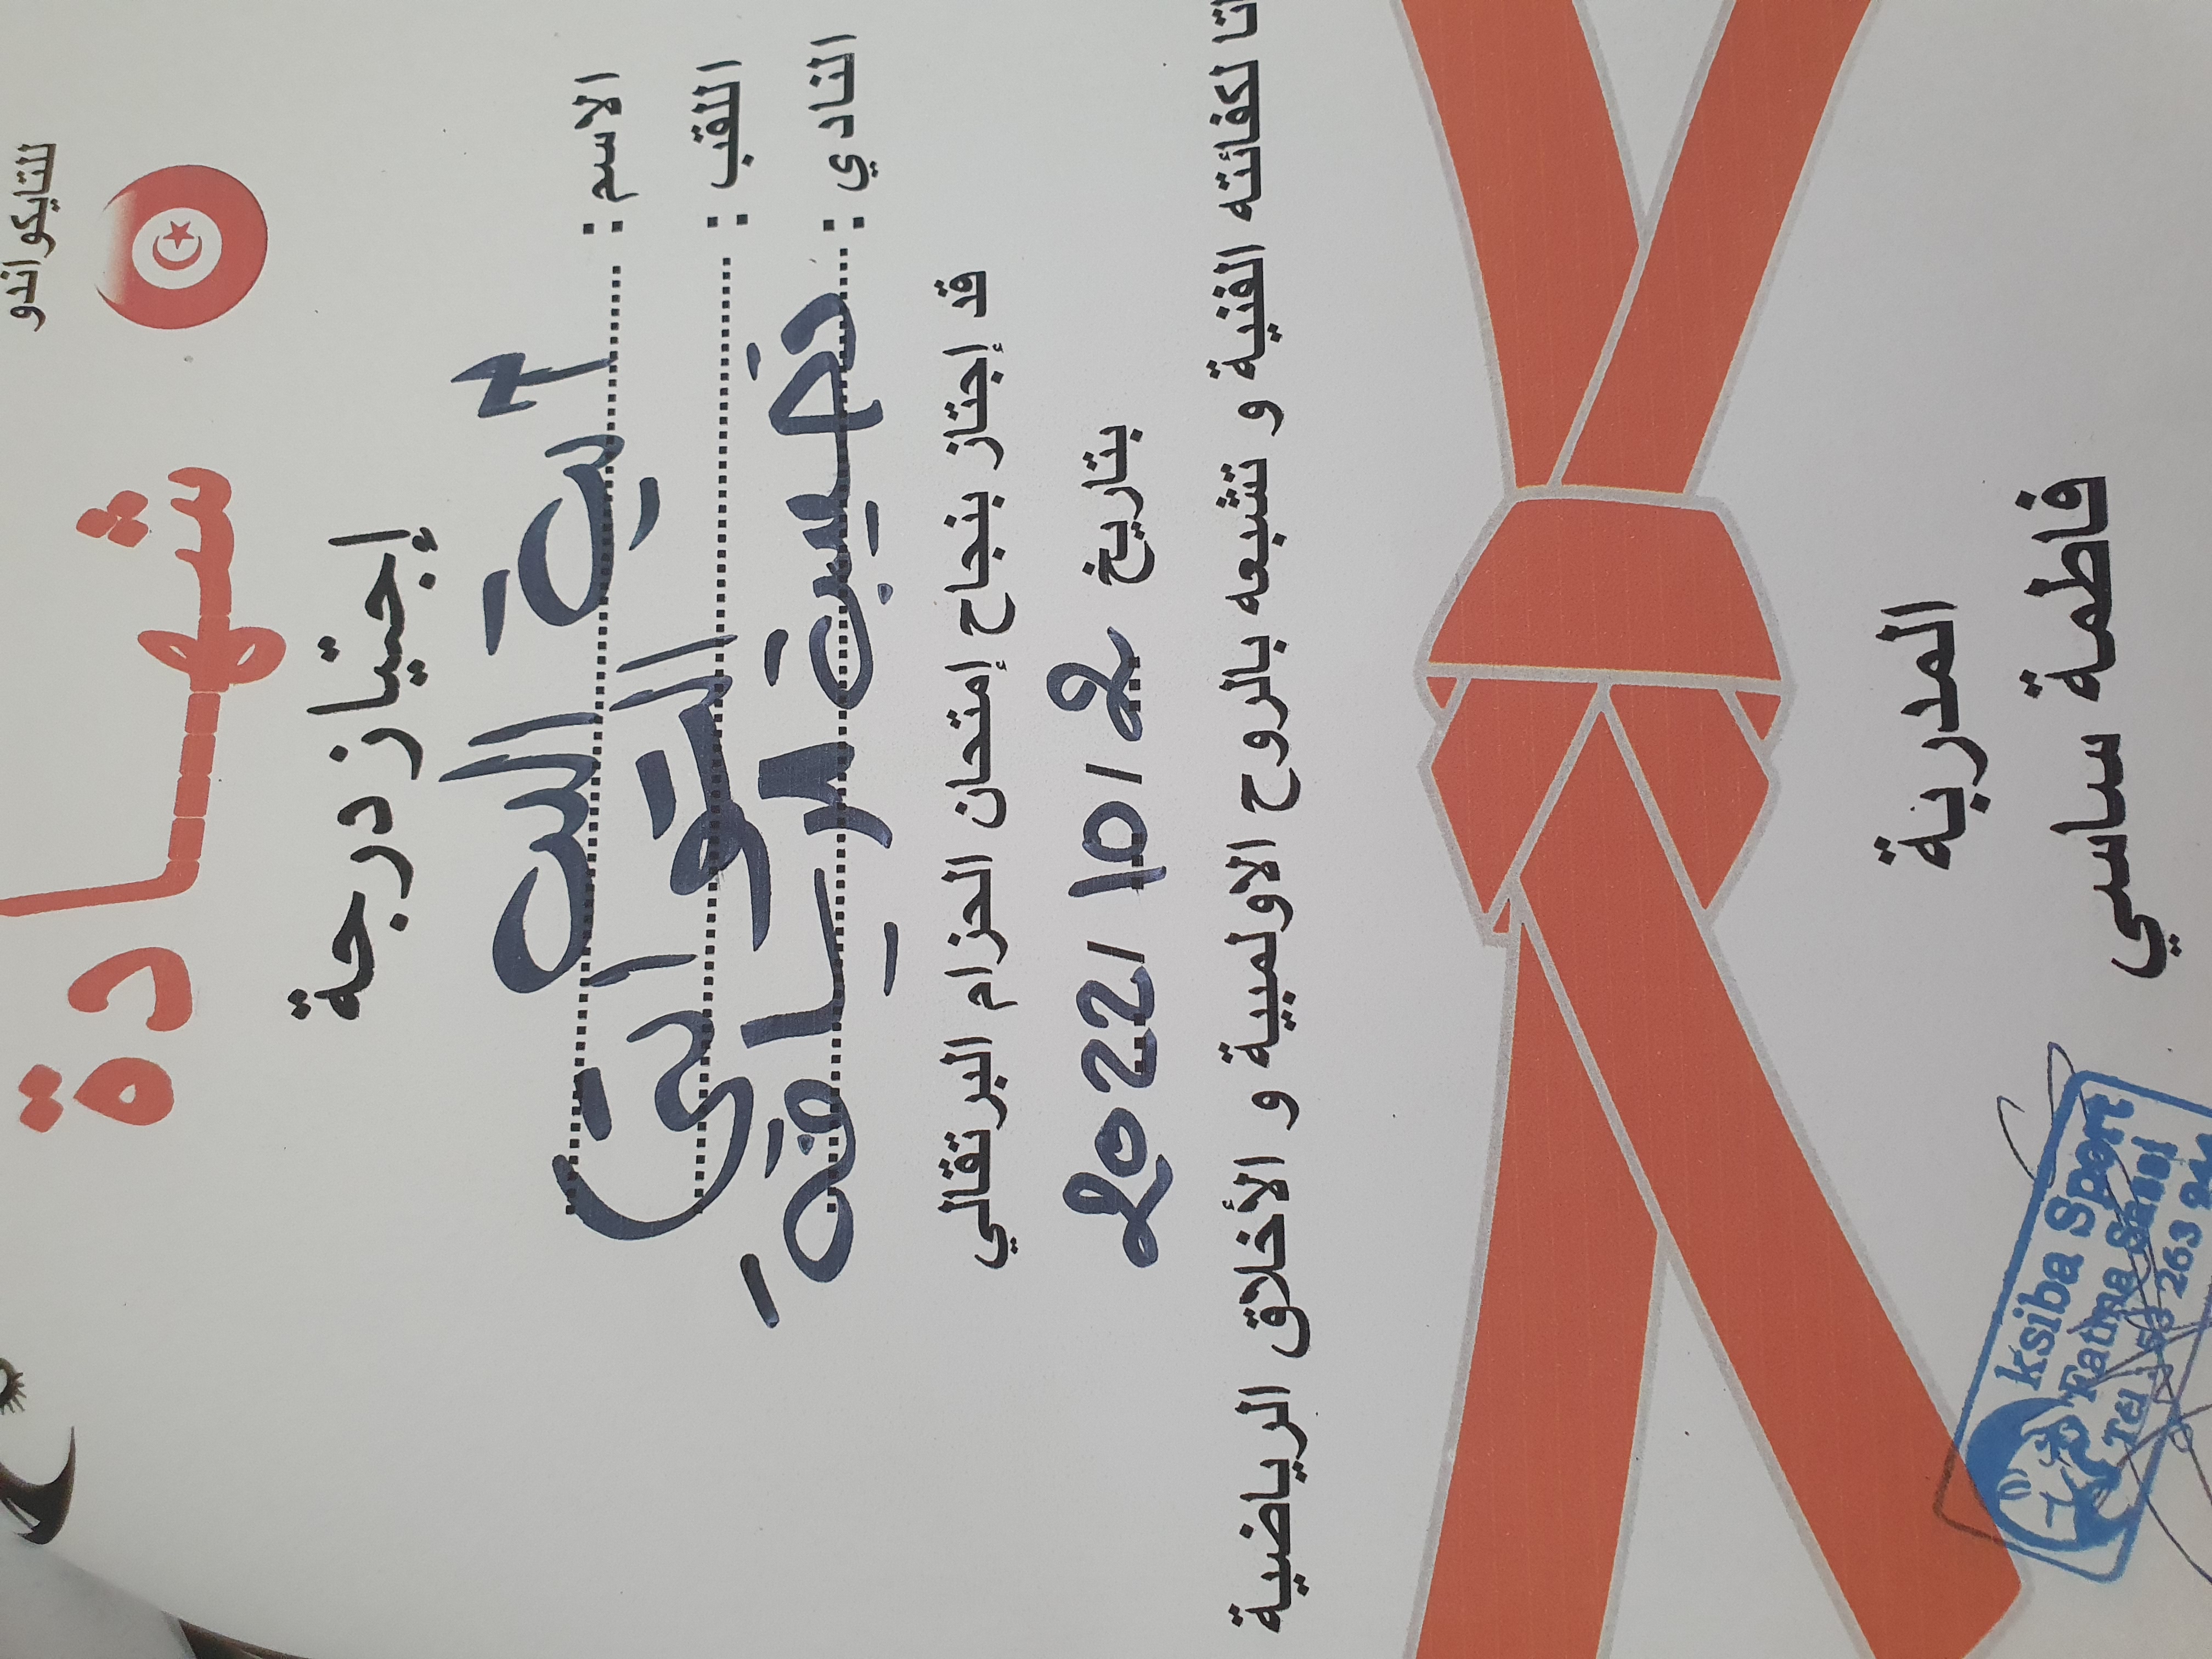 للتايكواندو
شهادة
إجتياز درجة
الاسم :
اللقب :
النادي :
قد إجتاز بنجاح إمتحان الحزام البرتقالي
بتاريخ 2022/10/2
لكفائته الفنية و تشبعه بالروح الاولمبية و الأخلاق الرياضية
المدربة
فاطمة ساسي
ksiba Sport
Fatma Sassi
Tel : 53 263